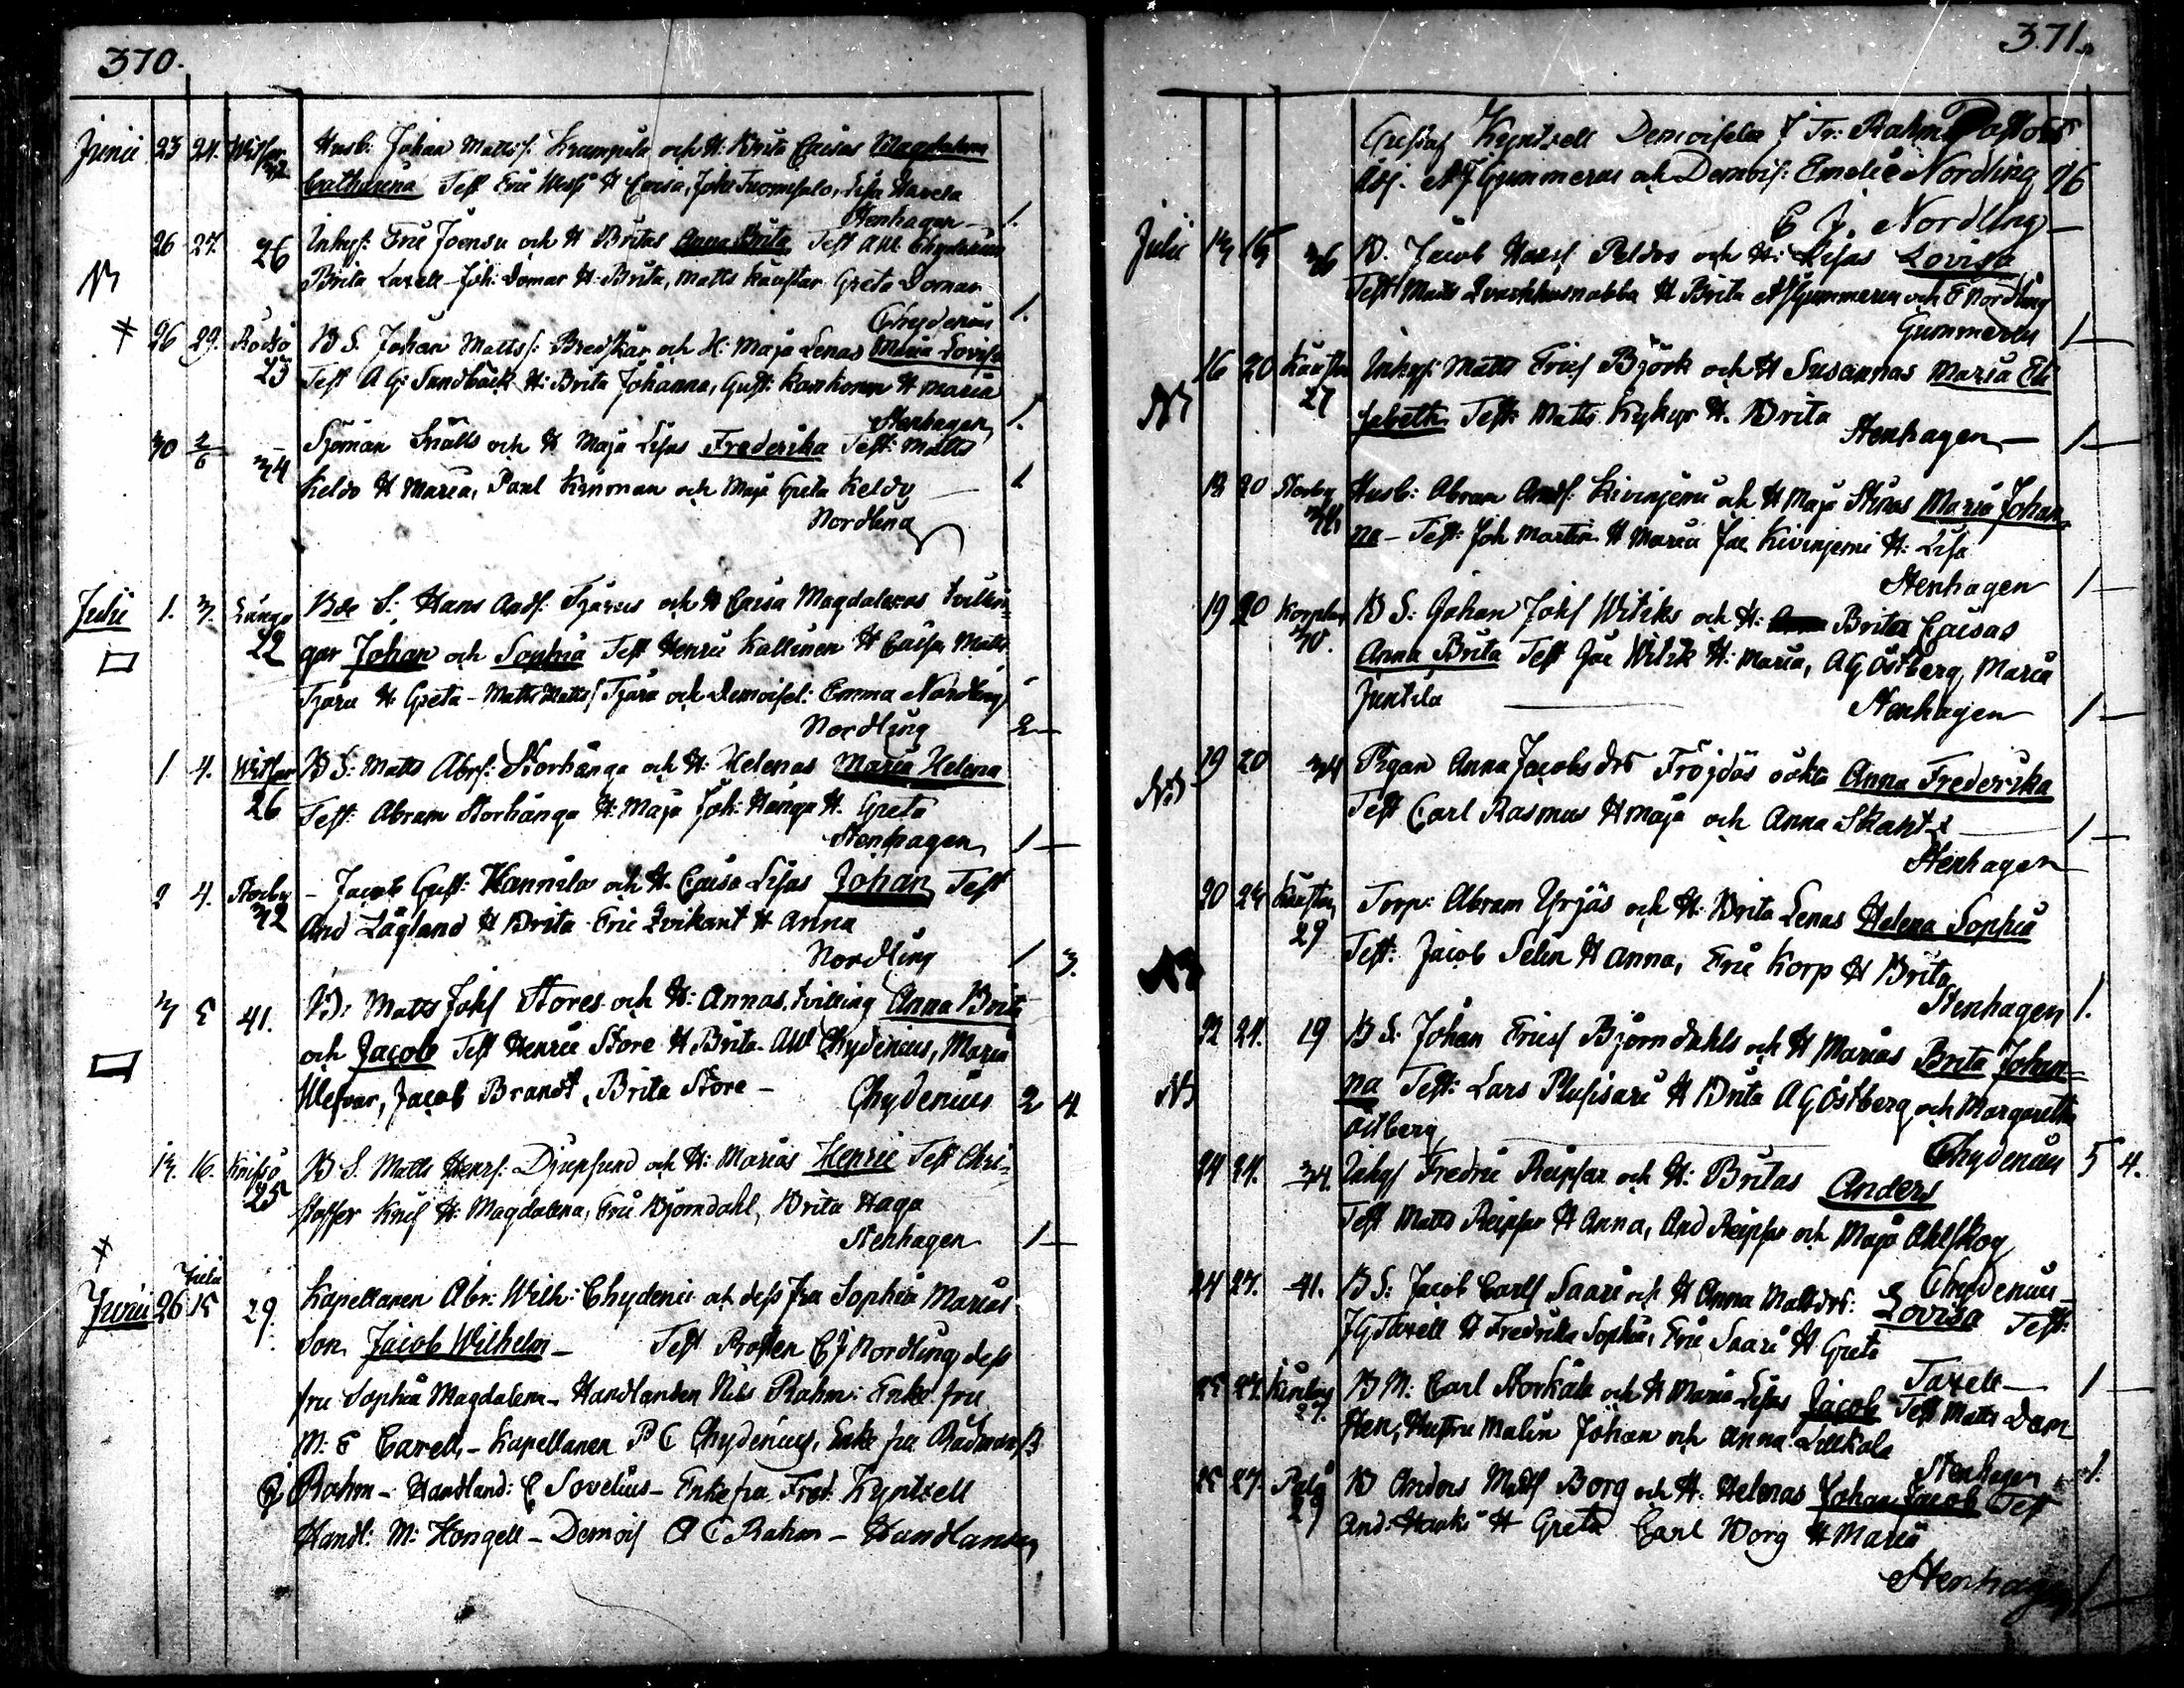 370.
Junii 23 24. Husb: Johan Matts: Krumpula och H: Brita Caisas Magdalena
Catharina Test Eric H Caisa, Johe Tuomisalo, Lisa Havela
Stenhagen — 1.
26 27. 26 Inhys: Eric Joensu och H Britas Anna Brita Test AW Chydenius
Brita Laxell - Joh: Domar H: Brita, Matts Kaustar Greta Domar
Chydenius 1.
26 29. Rödsö 25 B S. Johan Matts: Bredskär och H: Maja Lenas Maria Lovisa
Test A G: Sundbäck H: Brita Johanna, Gust: Kankonen H Maria
Stenhagen 1.
30 2/6 34 Sjöman Snälls och H Maja Lisas Frederika Test: Matts
Keldo H Maria, Paul Kinman och Maja Greta Keldo — 1
Nordling
Julii 1. 3. Långö 22 Bde S: Hans Ands: Tjärus och H Caisa Magdalenas tvillin
gar Johan och Sophia Test Henric Kallinen H Caisa Matts
Tjäru H Greta - Matts Matts Tjäru och Demoisel: Emma Nordling
Nordling 2 —
1 4. Witsar 26 B S: Matts Abrs: Storhånga och H: Helenas Maria Helena
Test: Abram Storhånga H: Maja Joh: Hånga H. Greta
Stenhagen 1 —
2 4. Storby 32 - Jacob Gust: Hannila och H. Caisa Lisas Johan Test
And Lågland H Brita Eric Qvikant H Anna
Nordling 1 3.
3 5 41. B: Matts Johs Stores och H: Annas tvilling Anna Brita
och Jacob Test Henric Store H Brita - AW Chydenius, Maria
Ulefvar, Jacob Brandt, Brita Store - Chydenius 2 4
13. 16. Knifsö 25 B S. Matts Henrs: Djupsund och H: Marias Henric Test Chri=
stoffer Knif H: Magdalena, Eric Björndahl, Brita Haga
Stenhagen 1 —
Julii
Junii 26 15 29. Kapellanen Abr: Wilh: Chydenii och dess fru Sophia Marias
son Jacob Wilhelm — Test Prosten E J Nordling dess
fru Sophia Magdalena - Handlanden Nils Rahm: Enke fru
M: E Cavell, - Kapellanen P C Chydenius, Enke fru Rådman
Rahm - Handland: E Sovelius - Enkefru Fred: Kyntzell
Handl: M: Hongell - Demois A C Rahm - Handlanden
371.
Gustaf Kyntzell Demoiselle J Tr: Rahm Pastors
Adj. A J Gummerus och Demois: Emelie Nordling 16
E J. Nordling —
Julii 13 15 36 B. Jacob Hanss Peldos och H: Lisas Lovisa
Test Matts Qvarkkusnabba H Brita A J Gummerus och E Nordling
Gummerus 1 —
16 20 27 Inhys: Matts Erics Björk och H Susannas Maria Eli
sabeth Test: Matts Kykyr H. Brita
Stenhagen — 1 —
18 20 Storby Husb: Abram Ands: Kivinjemi och H Maja Stinas Maria Johan
na - Test: Joh Martin H Maria Jac Kivinjemi H: Lisa
Stenhagen 1 —
19 20 Korplax 30. B S: Johan Johs Witiks och H: Brita Caisas
Anna Brita Test Jac Witik H: Maria, A G Östberg, Maria
Juntila Stenhagen 1 —
19 20 34 Pigan Anna Jacobs dr Fröjdös oäkta Anna Frederika
Test Carl Rasmus H Maja och Anna Skant 1 —
Stenhagen
20 24 29 Torp: Abram Yrjäs och H: Brita Lenas Helena Sophia
Test: Jacob Selin H Anna, Eric Korp H Brita
Stenhagen 1.
22 24. 19 B S: Johan Erics Björndahls och H Marias Brita Johan=
na Test: Lars Plusisari H Brita A G Östberg och Margaretha
Östberg
Chydenius 5 4.
24 24. 34. Inhys Fredric Reipsar och H: Britas Anders
Test Matts Reipsar H Anna, And Reipsar och Maja Ahlskog
Chydenius
24 27. 41. B S: Jacob Carls Saari och H Anna Mattsdr: Lovisa Test:
J G Taxell H Fredrika Sophia, Eric Saari H Greta
Taxell — 1 —
25 27. 27. B M: Carl Storkåla och H Maria Lisas Jacob Test Matts Dam
sten, Hustru Malin Johan och Anna Lillkåla
Stenhagen 1.
25 27. Pelo 29 B Anders Matts Borg och H. Helenas Johan Jacob Test
And: Hanki H Greta Carl Borg H Maria
Stenhagen 1 —